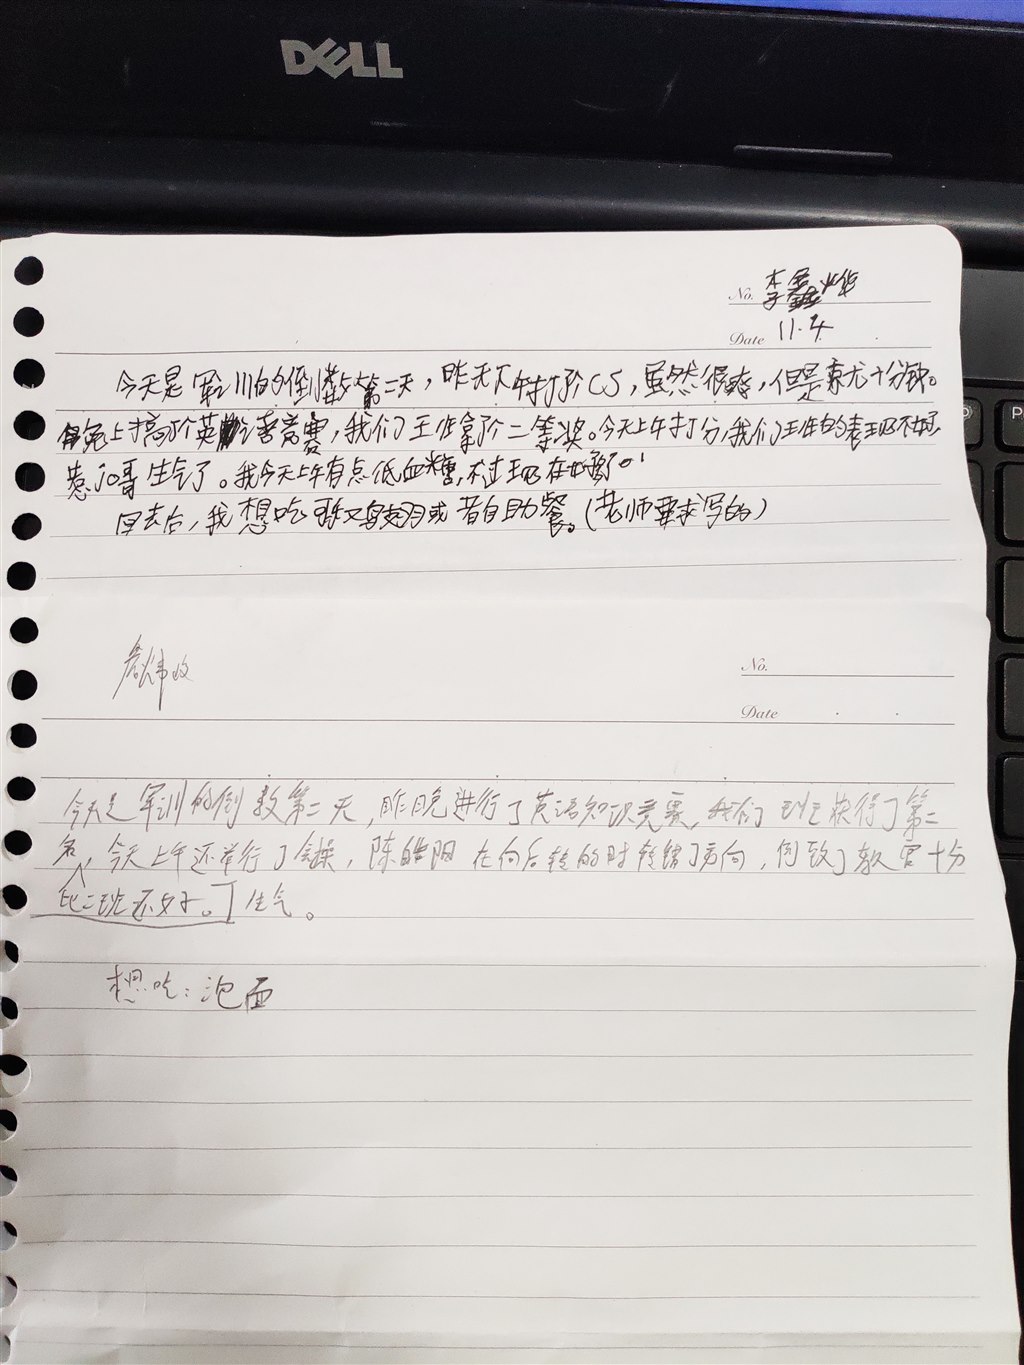 DELL
No. 李鑫烨
Date 11.4
P
今天是军训的倒数第二天，昨天下午打了CS，虽然很爽，但是就十分钟。
晚上搞了英语竞赛，我们班拿了二等奖。今天上午打分，我们班的表现不好，
惹了哥生气了。我今天上午有点低血糖，不过现在好多了。
回去后，我想吃鸡翅或者自助餐。（老师要求写的）
No.
Date
今天是军训的倒数第二天，昨晚进行了英语知识竞赛，我们班获得了第二
名，今天上午还举行了会操，陈皓阳在向后转的时转错了方向，倒致了教官十分
比二班还好。生气。
想吃：泡面